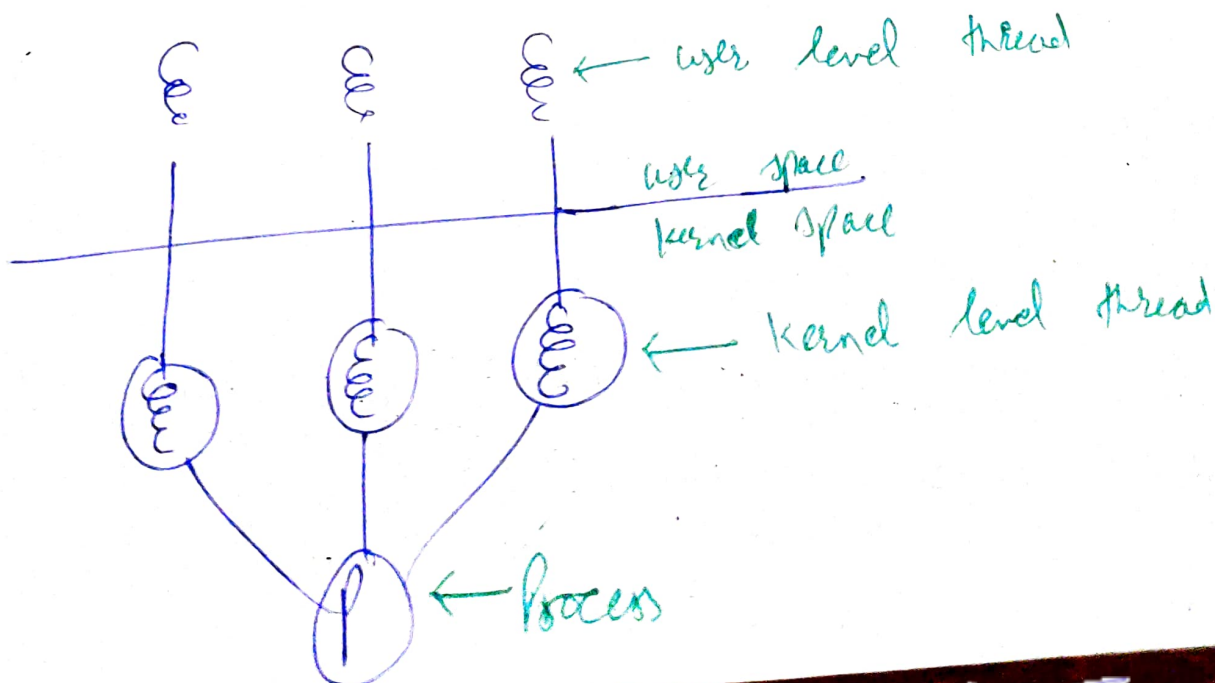 user level thread
user space
kernel space
kernel level thread
P
Process